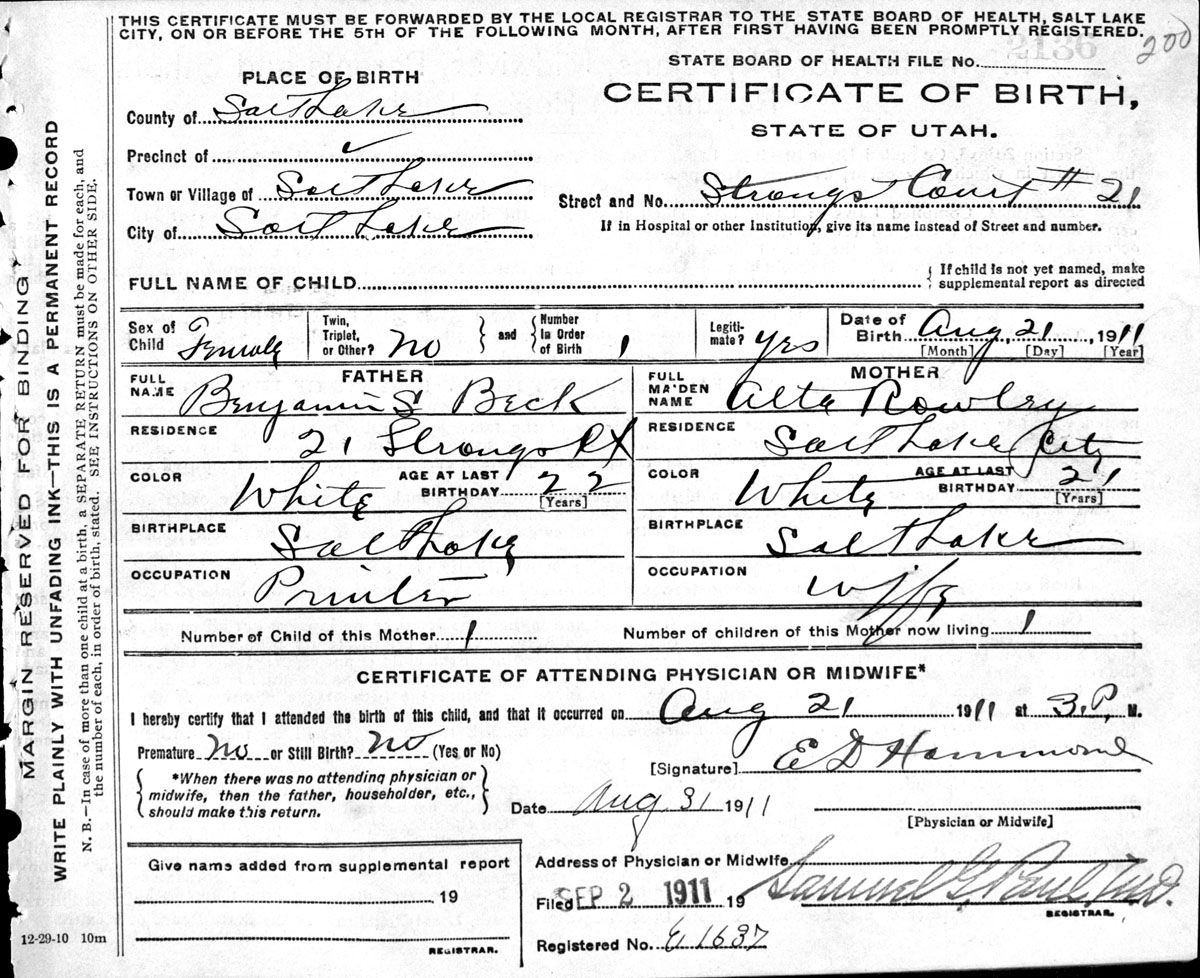 THIS CERTIFICATE MUST BE FORWARDED BY THE LOCAL REGISTRAR TO THE STATE BOARD OF HEALTH, SALT LAKE
CITY, ON OR BEFORE THE 5TH OF THE FOLLOWING MONTH, AFTER FIRST HAVING BEEN PROMPTLY REGISTERED.
200
STATE BOARD OF HEALTH FILE No. 2136
PLACE OF BIRTH
CERTIFICATE OF BIRTH,
STATE OF UTAH.
County of Salt Lake
Precinct of
Town or Village of Salt Lake
Street and No. Strongs Court # 21
City of Salt Lake
If in Hospital or other Institution, give its name instead of Street and number.
FULL NAME OF CHILD
{ If child is not yet named, make
supplemental report as directed
Sex of Child Female
Twin, Triplet, or Other? No
and
Number in Order of Birth 1
Legitimate? Yes
Date of Birth Aug, 21, 1911
[Month] [Day] [Year]
FATHER
FULL NAME Benjamin S Beck
RESIDENCE 21 Strongs
COLOR White
AGE AT LAST BIRTHDAY 22
[Years]
BIRTHPLACE Salt Lake
OCCUPATION Printer
MOTHER
FULL MAIDEN NAME Alta Rowley
RESIDENCE Salt Lake City
COLOR White
AGE AT LAST BIRTHDAY 21
[Years]
BIRTHPLACE Salt Lake
OCCUPATION Wife
Number of Child of this Mother 1
Number of children of this Mother now living 1
CERTIFICATE OF ATTENDING PHYSICIAN OR MIDWIFE*
I hereby certify that I attended the birth of this child, and that it occurred on Aug 21 1911 at 3 P. M.
Premature No or Still Birth? No (Yes or No)
[Signature] E D Hammond
{ *When there was no attending physician or
midwife, then the father, householder, etc.,
should make this return. }
Date Aug 31 1911
[Physician or Midwife]
Give name added from supplemental report
19
REGISTRAR.
Address of Physician or Midwife
Filed SEP 2 1911 19 Samuel G. Paul, M.D.
REGISTRAR.
Registered No. E 1637
12-29-10 10m
MARGIN RESERVED FOR BINDING
WRITE PLAINLY WITH UNFADING INK—THIS IS A PERMANENT RECORD
N. B.—In case of more than one child at a birth, a SEPARATE RETURN must be made for each, and
the number of each, in order of birth, stated. SEE INSTRUCTIONS ON OTHER SIDE.